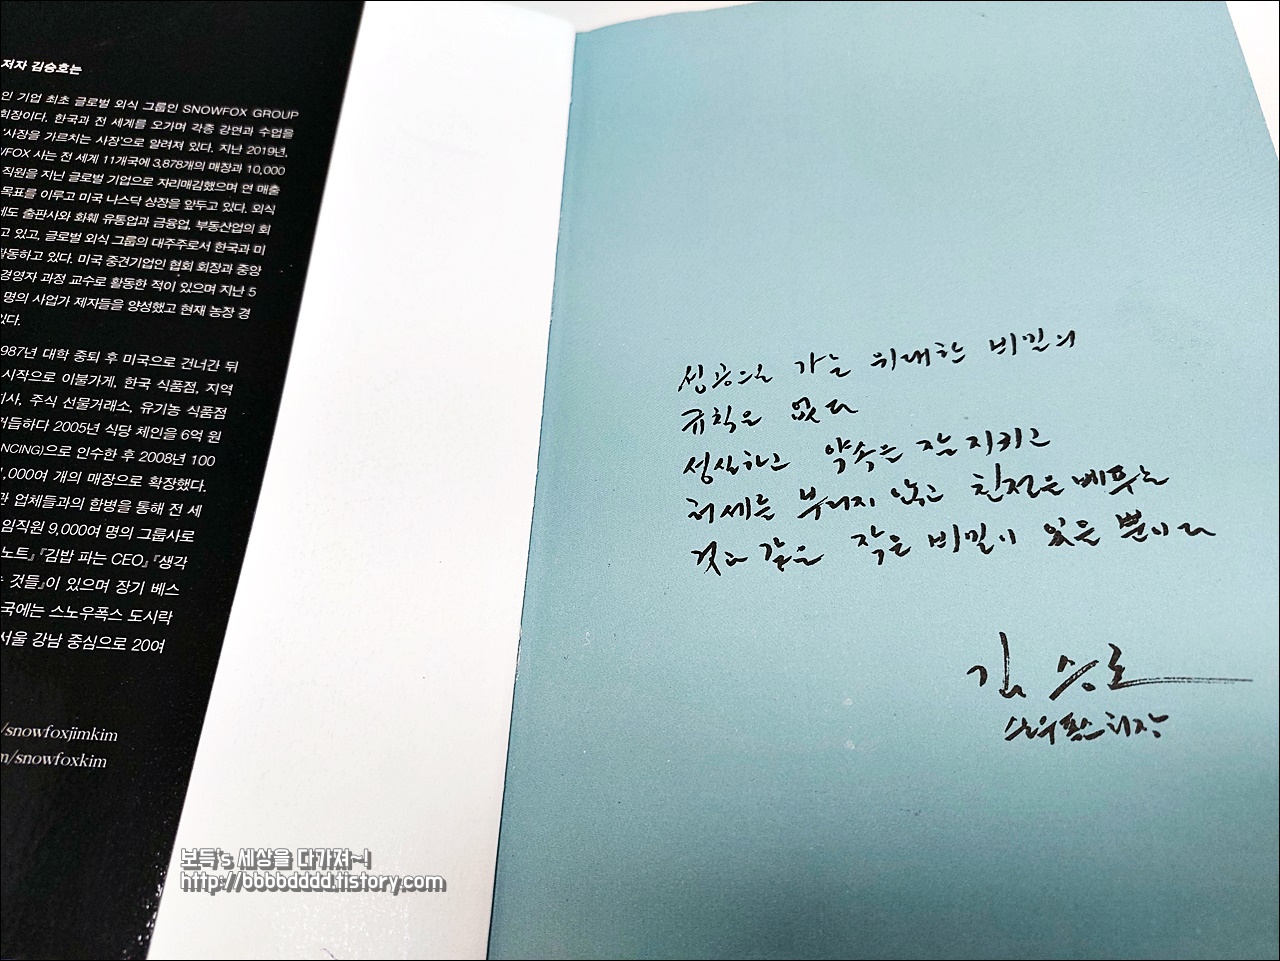 저자 김승호는
인 기업 최초 글로벌 외식 그룹인 SNOWFOX GROUP
회장이다. 한국과 전 세계를 오가며 각종 강연과 수업을
'사장을 가르치는 사장'으로 알려져 있다. 지난 2019년,
/FOX 사는 전 세계 11개국에 3,878개의 매장과 10,000
직원을 지닌 글로벌 기업으로 자리매김했으며 연 매출
목표를 이루고 미국 나스닥 상장을 앞두고 있다. 외식
에도 출판사와 화훼 유통업과 금융업, 부동산업의 회
고 있고, 글로벌 외식 그룹의 대주주로서 한국과 미
활동하고 있다. 미국 중견기업인 협회 회장과 중앙
경영자 과정 교수로 활동한 적이 있으며 지난 5
명의 사업가 제자들을 양성했고 현재 농장 경
있다.
987년 대학 중퇴 후 미국으로 건너간 뒤
시작으로 이불가게, 한국 식품점, 지역
사, 주식 선물거래소, 유기농 식품점
거듭하다 2005년 식당 체인을 6억 원
NCING)으로 인수한 후 2008년 100
,000여 개의 매장으로 확장했다.
관 업체들과의 합병을 통해 전 세
임직원 9,000여 명의 그룹사로
노트』 『김밥 파는 CEO』 『생각
는 것들』이 있으며 장기 베스
국에는 스노우폭스 도시락
서울 강남 중심으로 20여
/snowfoxjimkim
m/snowfoxkim
성공으로 가는 위대한 비밀의
규칙은 없다
성실하고 약속을 잘 지키고
허세를 부리지 않고 친절을 베푸는
것과 같은 작은 비밀이 있을 뿐이다
김승호
스노우폭스 회장
보득's 세상을 다가져~!
http://bbbbdddd.tistory.com